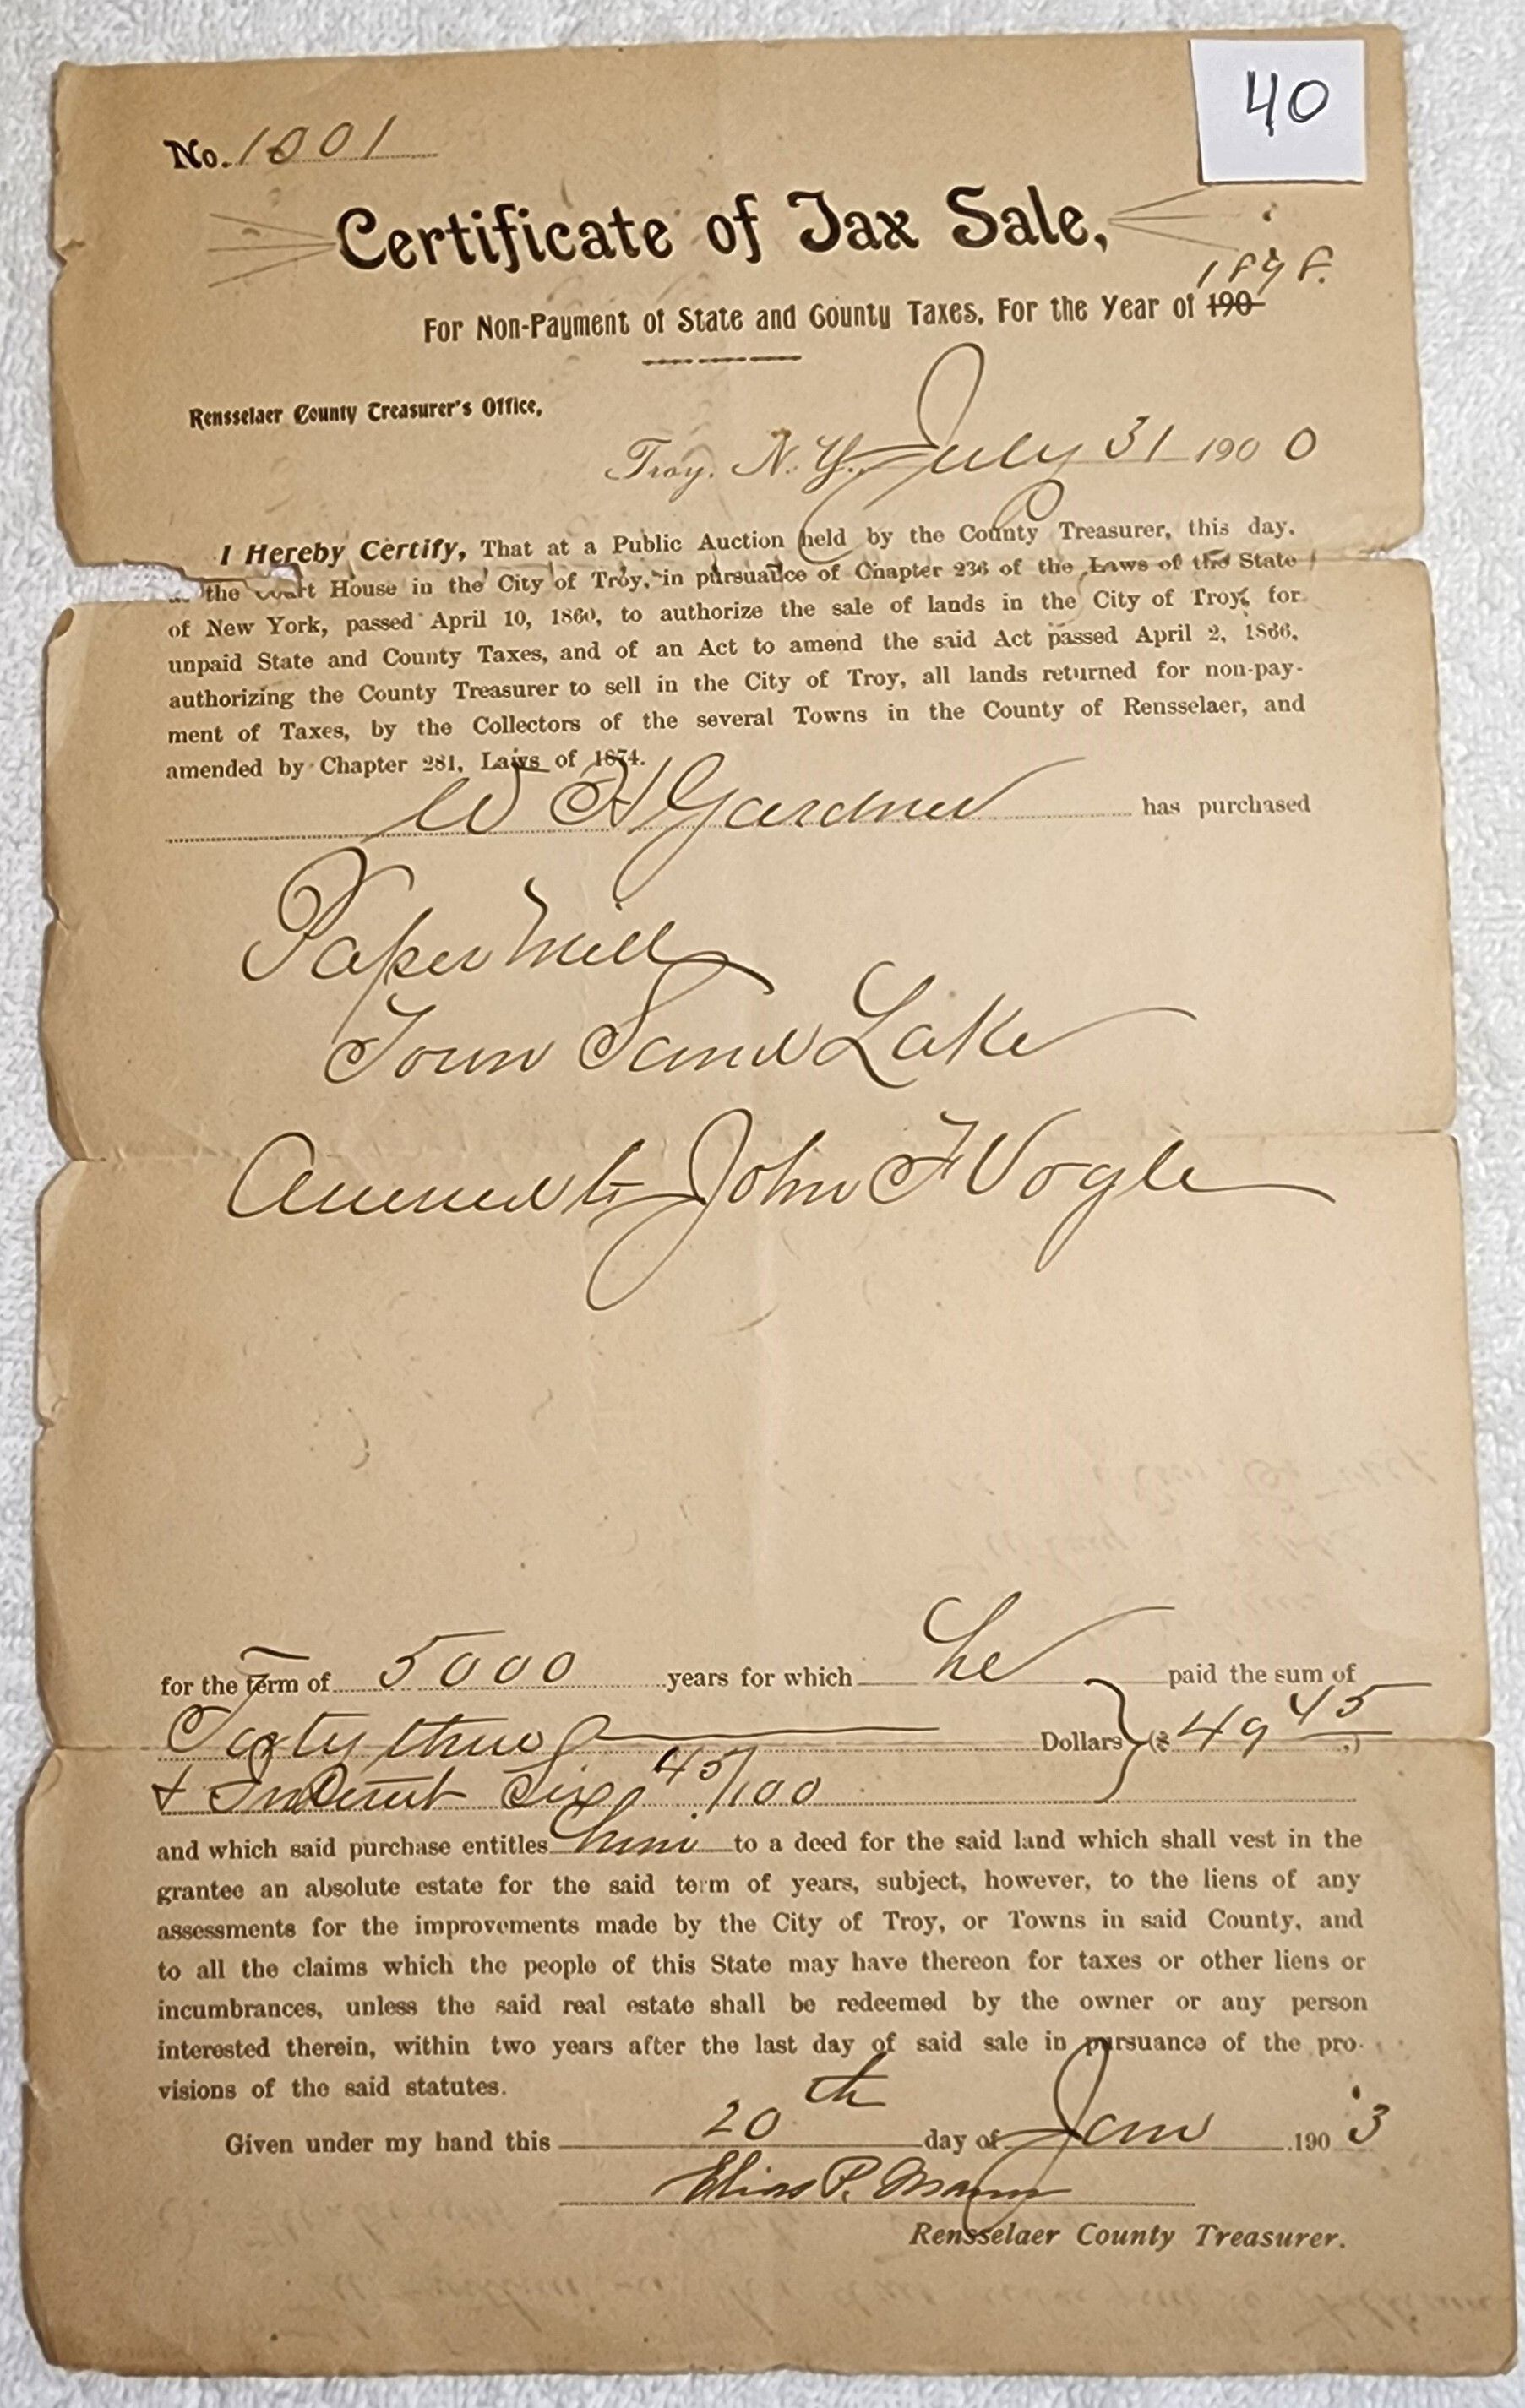 40
No. 1001
Certificate of Tax Sale,
1898.
For Non-Payment of State and County Taxes, For the Year of 190
Rensselaer County Treasurer's Office,
Troy, N. Y., July 31 1900
I Hereby Certify, That at a Public Auction held by the County Treasurer, this day,
the Court House in the City of Troy, in pursuance of Chapter 236 of the Laws of the State
of New York, passed April 10, 1860, to authorize the sale of lands in the City of Troy, for
unpaid State and County Taxes, and of an Act to amend the said Act passed April 2, 1866,
authorizing the County Treasurer to sell in the City of Troy, all lands returned for non-pay-
ment of Taxes, by the Collectors of the several Towns in the County of Rensselaer, and
amended by Chapter 281, Laws of 1874.
W H Gardner has purchased
Paper Mill
Town Sand Lake
to John F Vogle
for the term of 5000 years for which he paid the sum of
Forty three Dollars ($49 45)
& Interest Six 45/100
and which said purchase entitles him to a deed for the said land which shall vest in the
grantee an absolute estate for the said term of years, subject, however, to the liens of any
assessments for the improvements made by the City of Troy, or Towns in said County, and
to all the claims which the people of this State may have thereon for taxes or other liens or
incumbrances, unless the said real estate shall be redeemed by the owner or any person
interested therein, within two years after the last day of said sale in pursuance of the pro-
visions of the said statutes.
Given under my hand this 20th day of Jan 1903
Elias P. Mann
Rensselaer County Treasurer.